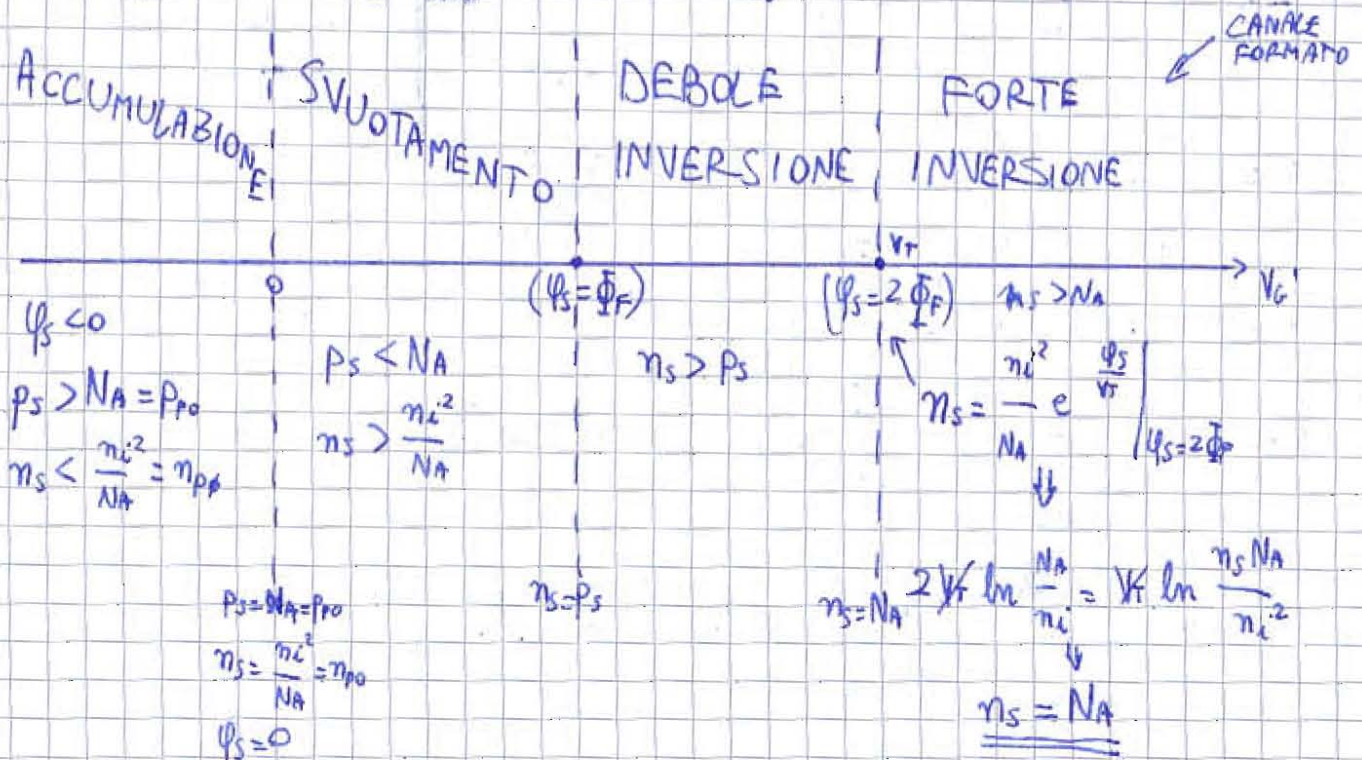 CANALE
FORMATO
ACCUMULAZIONE
SVUOTAMENTO
DEBOLE
INVERSIONE
FORTE
INVERSIONE
0
(φs = ΦF)
VT
(φs = 2 ΦF)
ns > NA
VG'
φs < 0
ps > NA = Ppo
ns < ni² / NA = npo
ps < NA
ns > ni² / NA
ns > ps
ns = ni² / NA e^(φs/VT) |φs = 2ΦF
⇓
ps = NA = Ppo
ns = ni² / NA = npo
φs = 0
ns = ps
ns = NA
2 VT ln NA / ni = VT ln ns NA / ni²
⇓
ns = NA